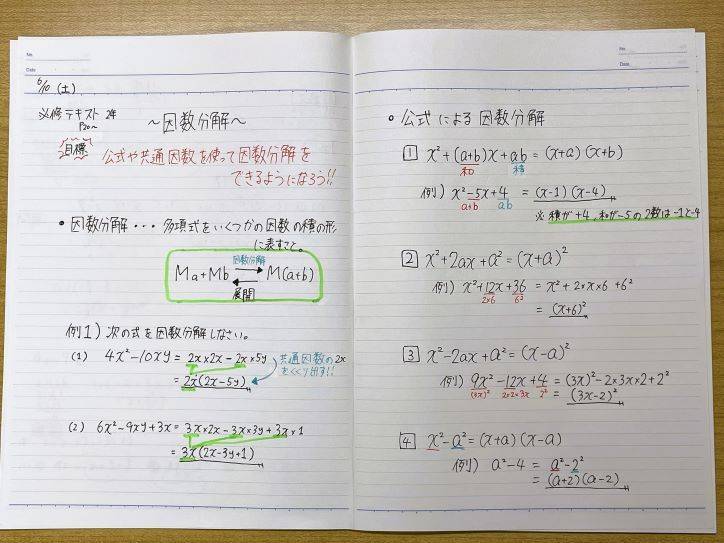 No.
Date
6/10 (土)
必修テキスト 2年
P20~
~因数分解~
目標
公式や共通因数を使って因数分解を
できるようになろう!!
・因数分解・・・多項式をいくつかの因数の積の形
に表すこと。
因数分解
Ma+Mb M(a+b)
展開
例1) 次の式を因数分解しなさい。
(1) 4x²-10xy = 2x×2x-2x×5y
= 2x(2x-5y)
共通因数の2x
をくくり出す!!
(2) 6x²-9xy+3x = 3x×2x-3x×3y+3x×1
= 3x(2x-3y+1)
No.
Date
○ 公式による因数分解
1 x²+(a+b)x+ab = (x+a)(x+b)
和 積
例) x²-5x+4 = (x-1)(x-4)
a+b ab
※積が+4,和が-5の2数は-1と-4
2 x²+2ax+a² = (x+a)²
例) x²+12x+36 = x²+2×x×6+6²
2×6 6²
= (x+6)²
3 x²-2ax+a² = (x-a)²
例) 9x²-12x+4 = (3x)²-2×3x×2+2²
(3x)² 2×2×3x 2²
= (3x-2)²
4 x²-a² = (x+a)(x-a)
例) a²-4 = a²-2²
= (a+2)(a-2)